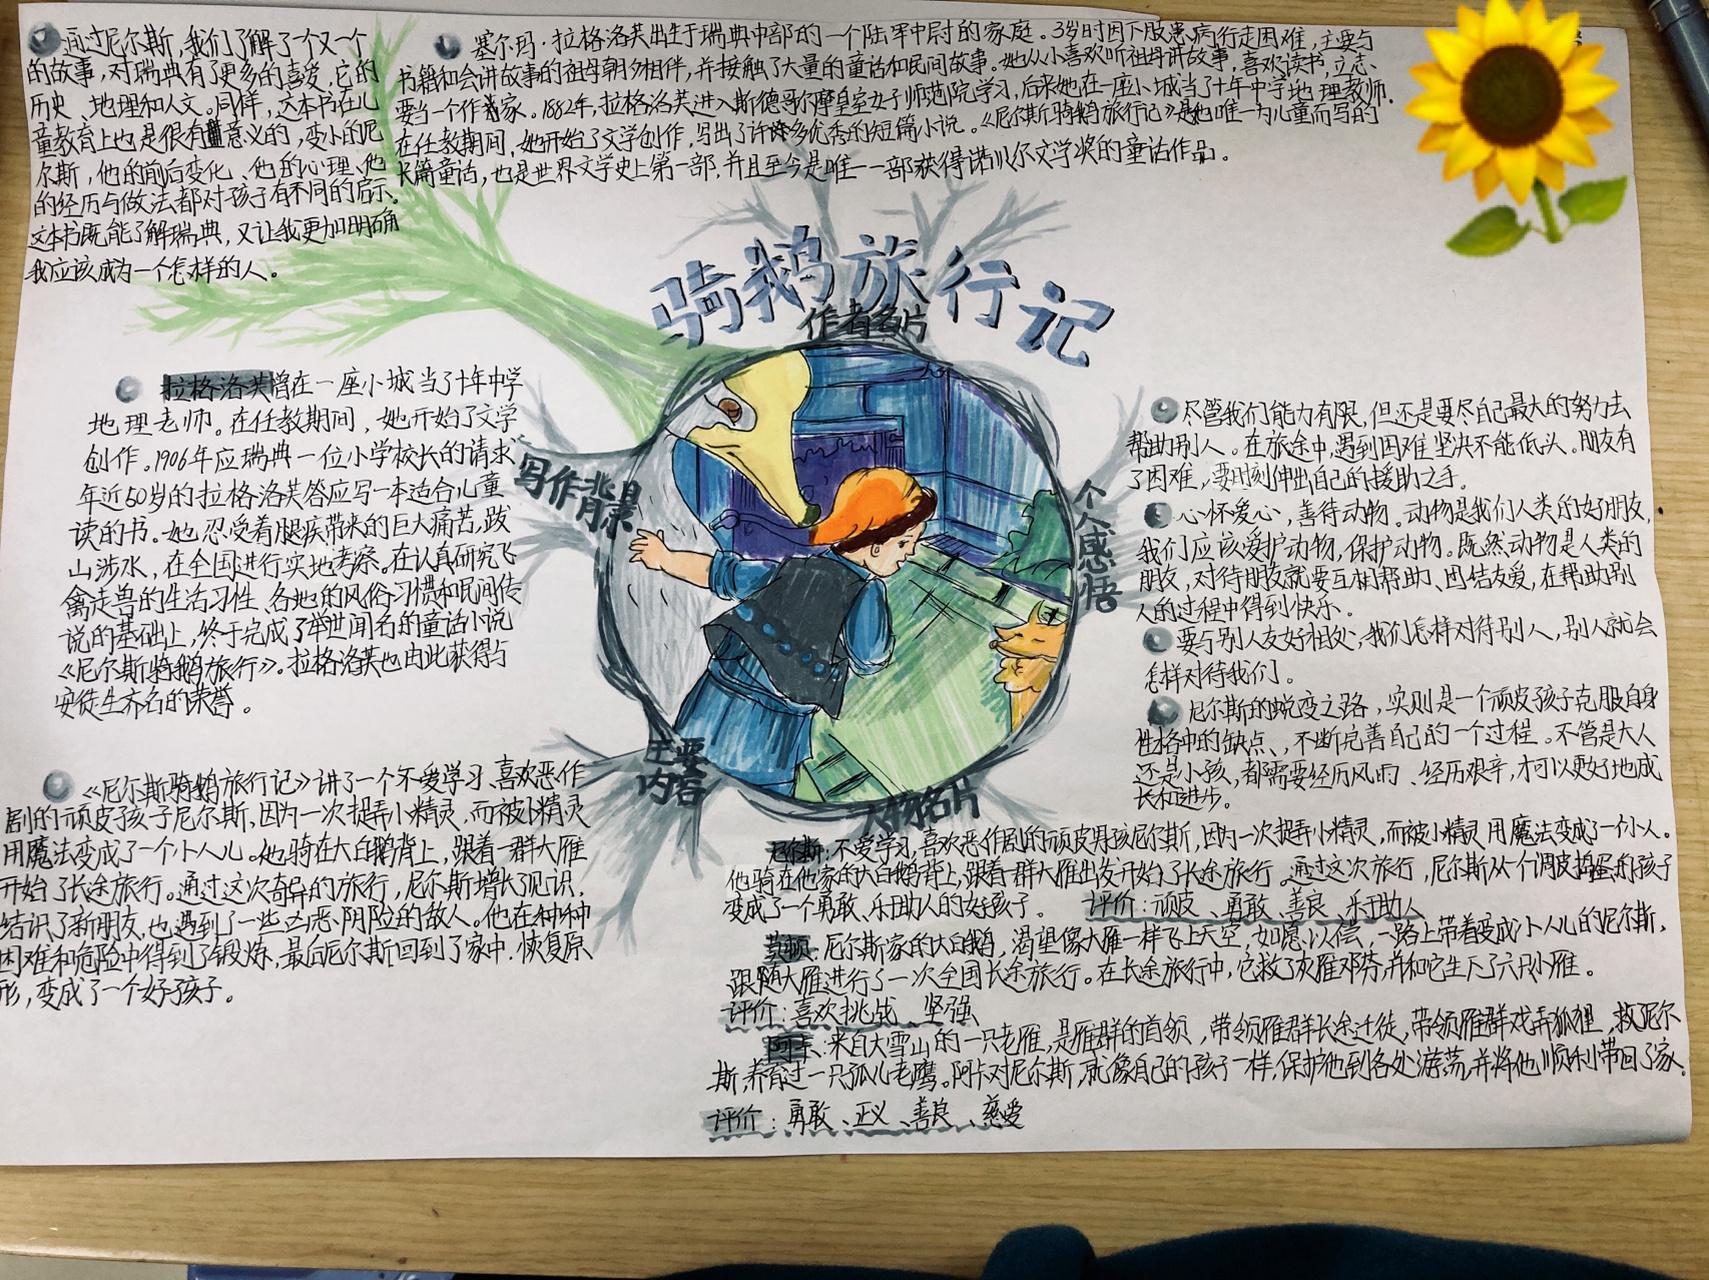 通过尼尔斯,我们了解了一个又一个
的故事,对瑞典有了更多的喜爱,它的
历史、地理和人文。同样,这本书在儿
童教育上也是很有意义的,变小的尼
尔斯,他的前后变化、他的心理、他
的经历与做法都对孩子有不同的启示。
这本书既能了解瑞典,又让我更加明确
我应该成为一个怎样的人。
塞尔玛·拉格洛芙出生于瑞典中部的一个陆军中尉的家庭。3岁时因下肢患病行走困难,主要与
书籍和会讲故事的祖母朝夕相伴,并接触了大量的童话和民间故事。她从小喜欢听祖母讲故事,喜欢读书,立志、
要当一个作家。1882年,拉格洛芙进入斯德哥尔摩皇家女子师范院学习,后来她在一座小城当了十年中学地理教师.
在任教期间,她开始了文学创作,写出了许多优秀的短篇小说。《尼尔斯骑鹅旅行记》是她唯一为儿童而写的
长篇童话,也是世界文学史上第一部,并且至今是唯一一部获得诺贝尔文学奖的童话作品。
骑鹅旅行记
作者名片
拉格洛芙曾在一座小城当了十年中学
地理老师。在任教期间,她开始了文学
创作。1906年应瑞典一位小学校长的请求
年近50岁的拉格洛芙答应写一本适合儿童
读的书。她忍受着腿疾带来的巨大痛苦,跋
山涉水,在全国进行实地考察。在认真研究飞
禽走兽的生活习性、各地的风俗习惯和民间传
说的基础上,终于完成了举世闻名的童话小说
《尼尔斯骑鹅旅行》。拉格洛芙也由此获得与
安徒生齐名的荣誉。
写作背景
个人感悟
尽管我们能力有限,但还是要尽自己最大的努力去
帮助别人。在旅途中,遇到困难坚决不能低头。朋友有
了困难,要时刻伸出自己的援助之手。
心怀爱心,善待动物。动物是我们人类的好朋友,
我们应该爱护动物,保护动物。既然动物是人类的
朋友,对待朋友就要互相帮助、团结友爱,在帮助别
人的过程中得到快乐。
要与别人友好相处,我们怎样对待别人,别人就会
怎样对待我们。
尼尔斯的蜕变之路,实则是一个顽皮孩子克服自身
性格中的缺点、,不断完善自己的一个过程。不管是大人
还是小孩,都需要经历风雨、经历艰辛,才可以更好地成
长和进步。
主要
内容
《尼尔斯骑鹅旅行记》讲了一个不爱学习、喜欢恶作
剧的顽皮孩子尼尔斯,因为一次捉弄小精灵,而被小精灵
用魔法变成了一个小人儿。他骑在大白鹅背上,跟着一群大雁
开始了长途旅行。通过这次奇异的旅行,尼尔斯增长了见识,
结识了新朋友,也遇到了一些凶恶、阴险的敌人。他在种种
困难和危险中得到了锻炼,最后尼尔斯回到了家中,恢复原
形,变成了一个好孩子。
人物名片
尼尔斯:不爱学习,喜欢恶作剧的顽皮男孩尼尔斯,因为一次捉弄小精灵,而被小精灵用魔法变成了一个小人。
他骑在他家的大白鹅背上,跟着一群大雁出发开始了长途旅行。通过这次旅行,尼尔斯从个调皮捣蛋的孩子
变成了一个勇敢、乐助人的好孩子。 评价:顽皮、勇敢、善良、乐于助人
莫顿:尼尔斯家的大白鹅,渴望像大雁一样飞上天空,如愿以偿,一路上带着变成小人儿的尼尔斯,
跟随大雁进行了一次全国长途旅行。在长途旅行中,它救了灰雁邓芬,并和它生下了六只小雁。
评价:喜欢挑战、坚强
阿卡:来自大雪山的一只老雁,是雁群的首领,带领雁群长途迁徙,带领雁群戏弄狐狸,救尼尔
斯,养育过一只孤儿老鹰。阿卡对尼尔斯,就像自己的孩子一样,保护他到各处游荡,并将他顺利带回了家.
评价:勇敢、正义、善良、慈爱